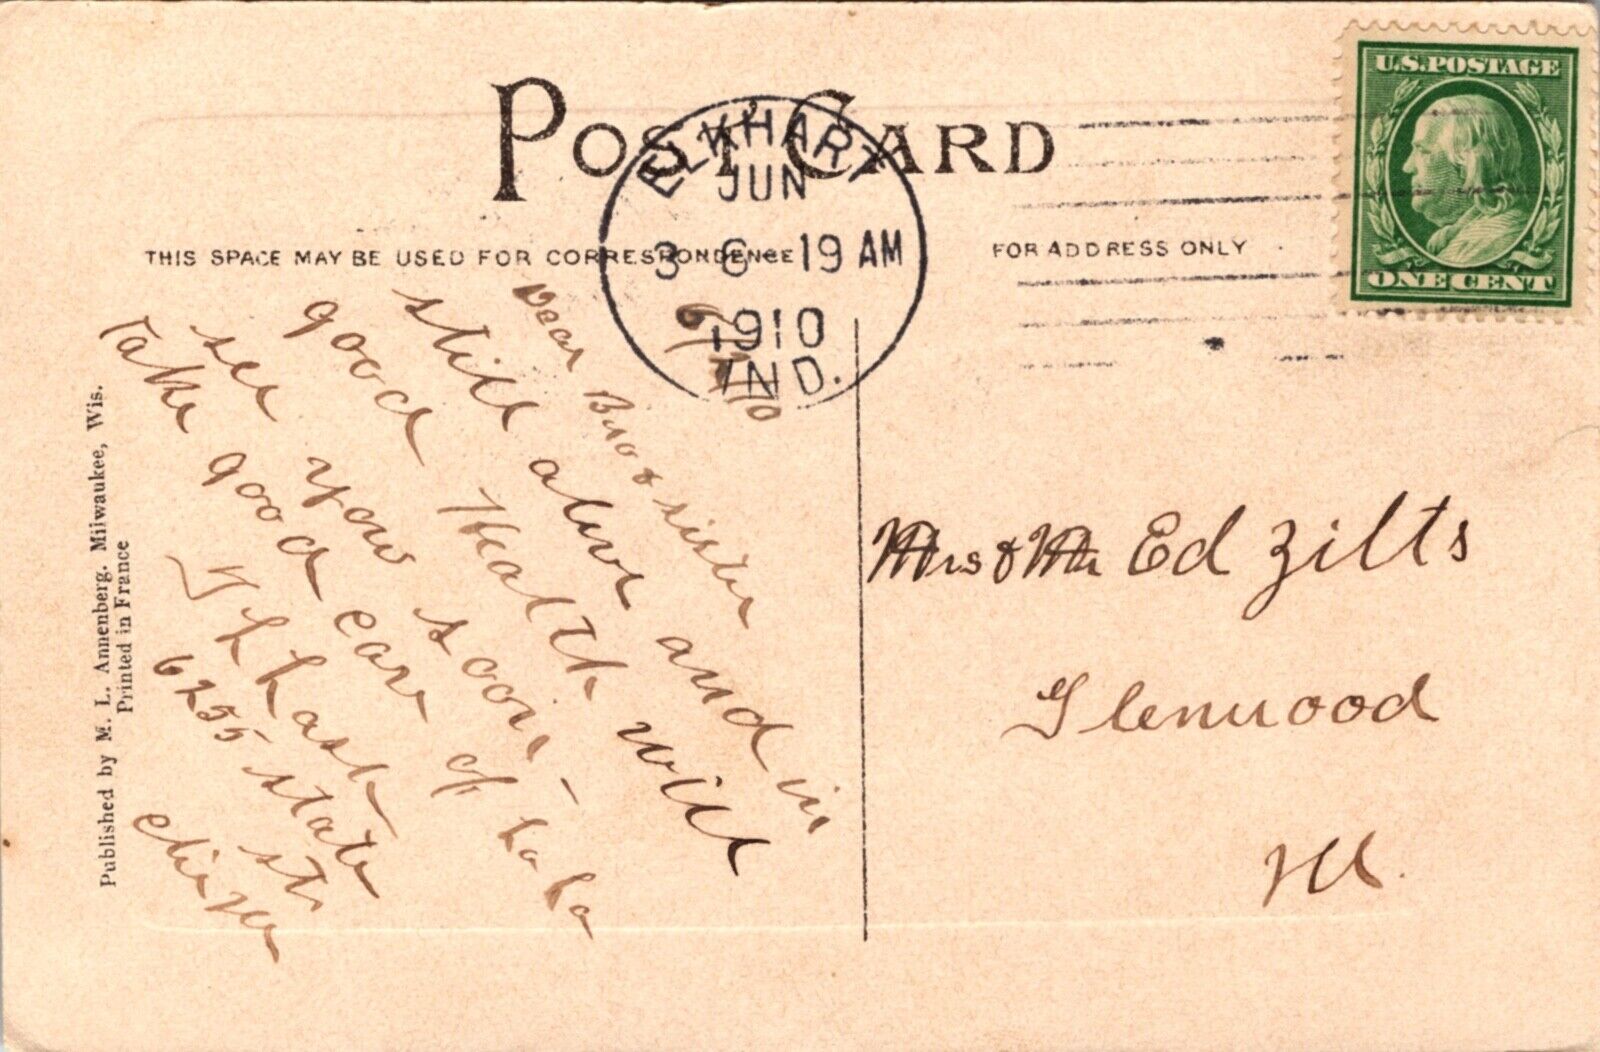 POST CARD
U.S. POSTAGE
ONE CENT
ELKHART
JUN
3 6-19 AM
1910
IND.
THIS SPACE MAY BE USED FOR CORRESPONDENCE
FOR ADDRESS ONLY
Dear Bro & sister
still alive and in
good Health will
see you soon -
Take good care of
6255 state st
Mrs & Mr Ed Zilts
Glenwood
Ill.
Published by M. L. Annenberg. Milwaukee, Wis.
Printed in France